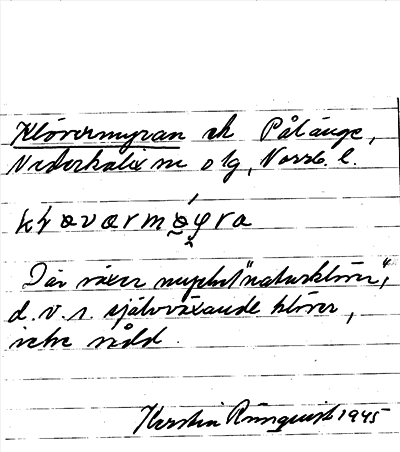 Klövermyran ek Pålänge,
Nederkalix sn o lg, Norrb. l.
Där växer mycket "naturklöver",
d.v.s. självväxande klöver,
icke sådd.
Kerstin Rönnquist 1945